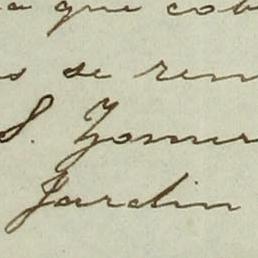 a que cob
s se ren
S. Zomer
Jardin